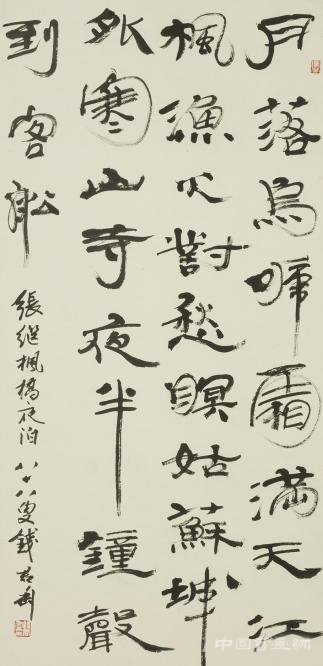 月落烏啼霜滿天江
楓漁火對愁瞑姑蘇城
外寒山寺夜半鐘聲
到客船
張继楓橋夜泊 八十八叟錢君匋